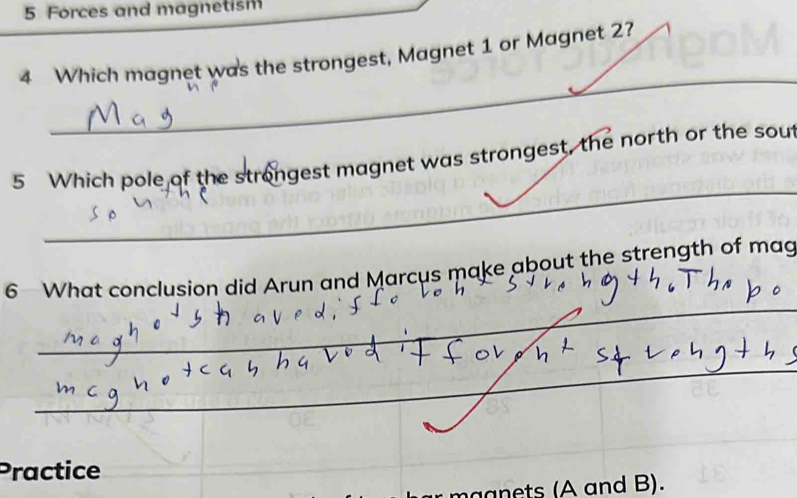 5 Forces and magnetism
4 Which magnet was the strongest, Magnet 1 or Magnet 2?
Mag
5 Which pole of the strongest magnet was strongest, the north or the sout
so
6 What conclusion did Arun and Marcus make about the strength of mag
strength. The po
magnets have
magnet can have different strengths
Practice
magnets (A and B).